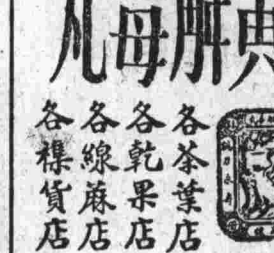 典解毋
各茶葉店
各乾果店
各線蔴店
各襍貨店